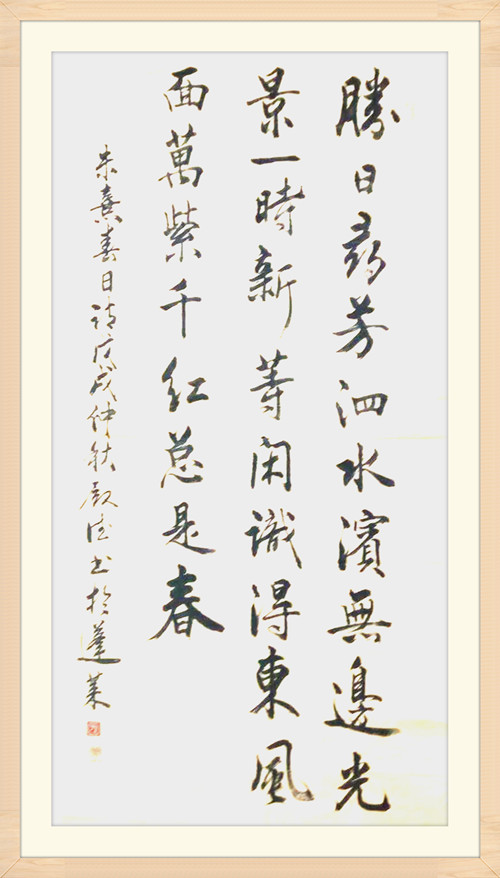 勝日尋芳泗水濱無邊光
景一時新等閑識得東風
面萬紫千紅总是春
朱熹春日詩戊戌仲秋书於蓬莱